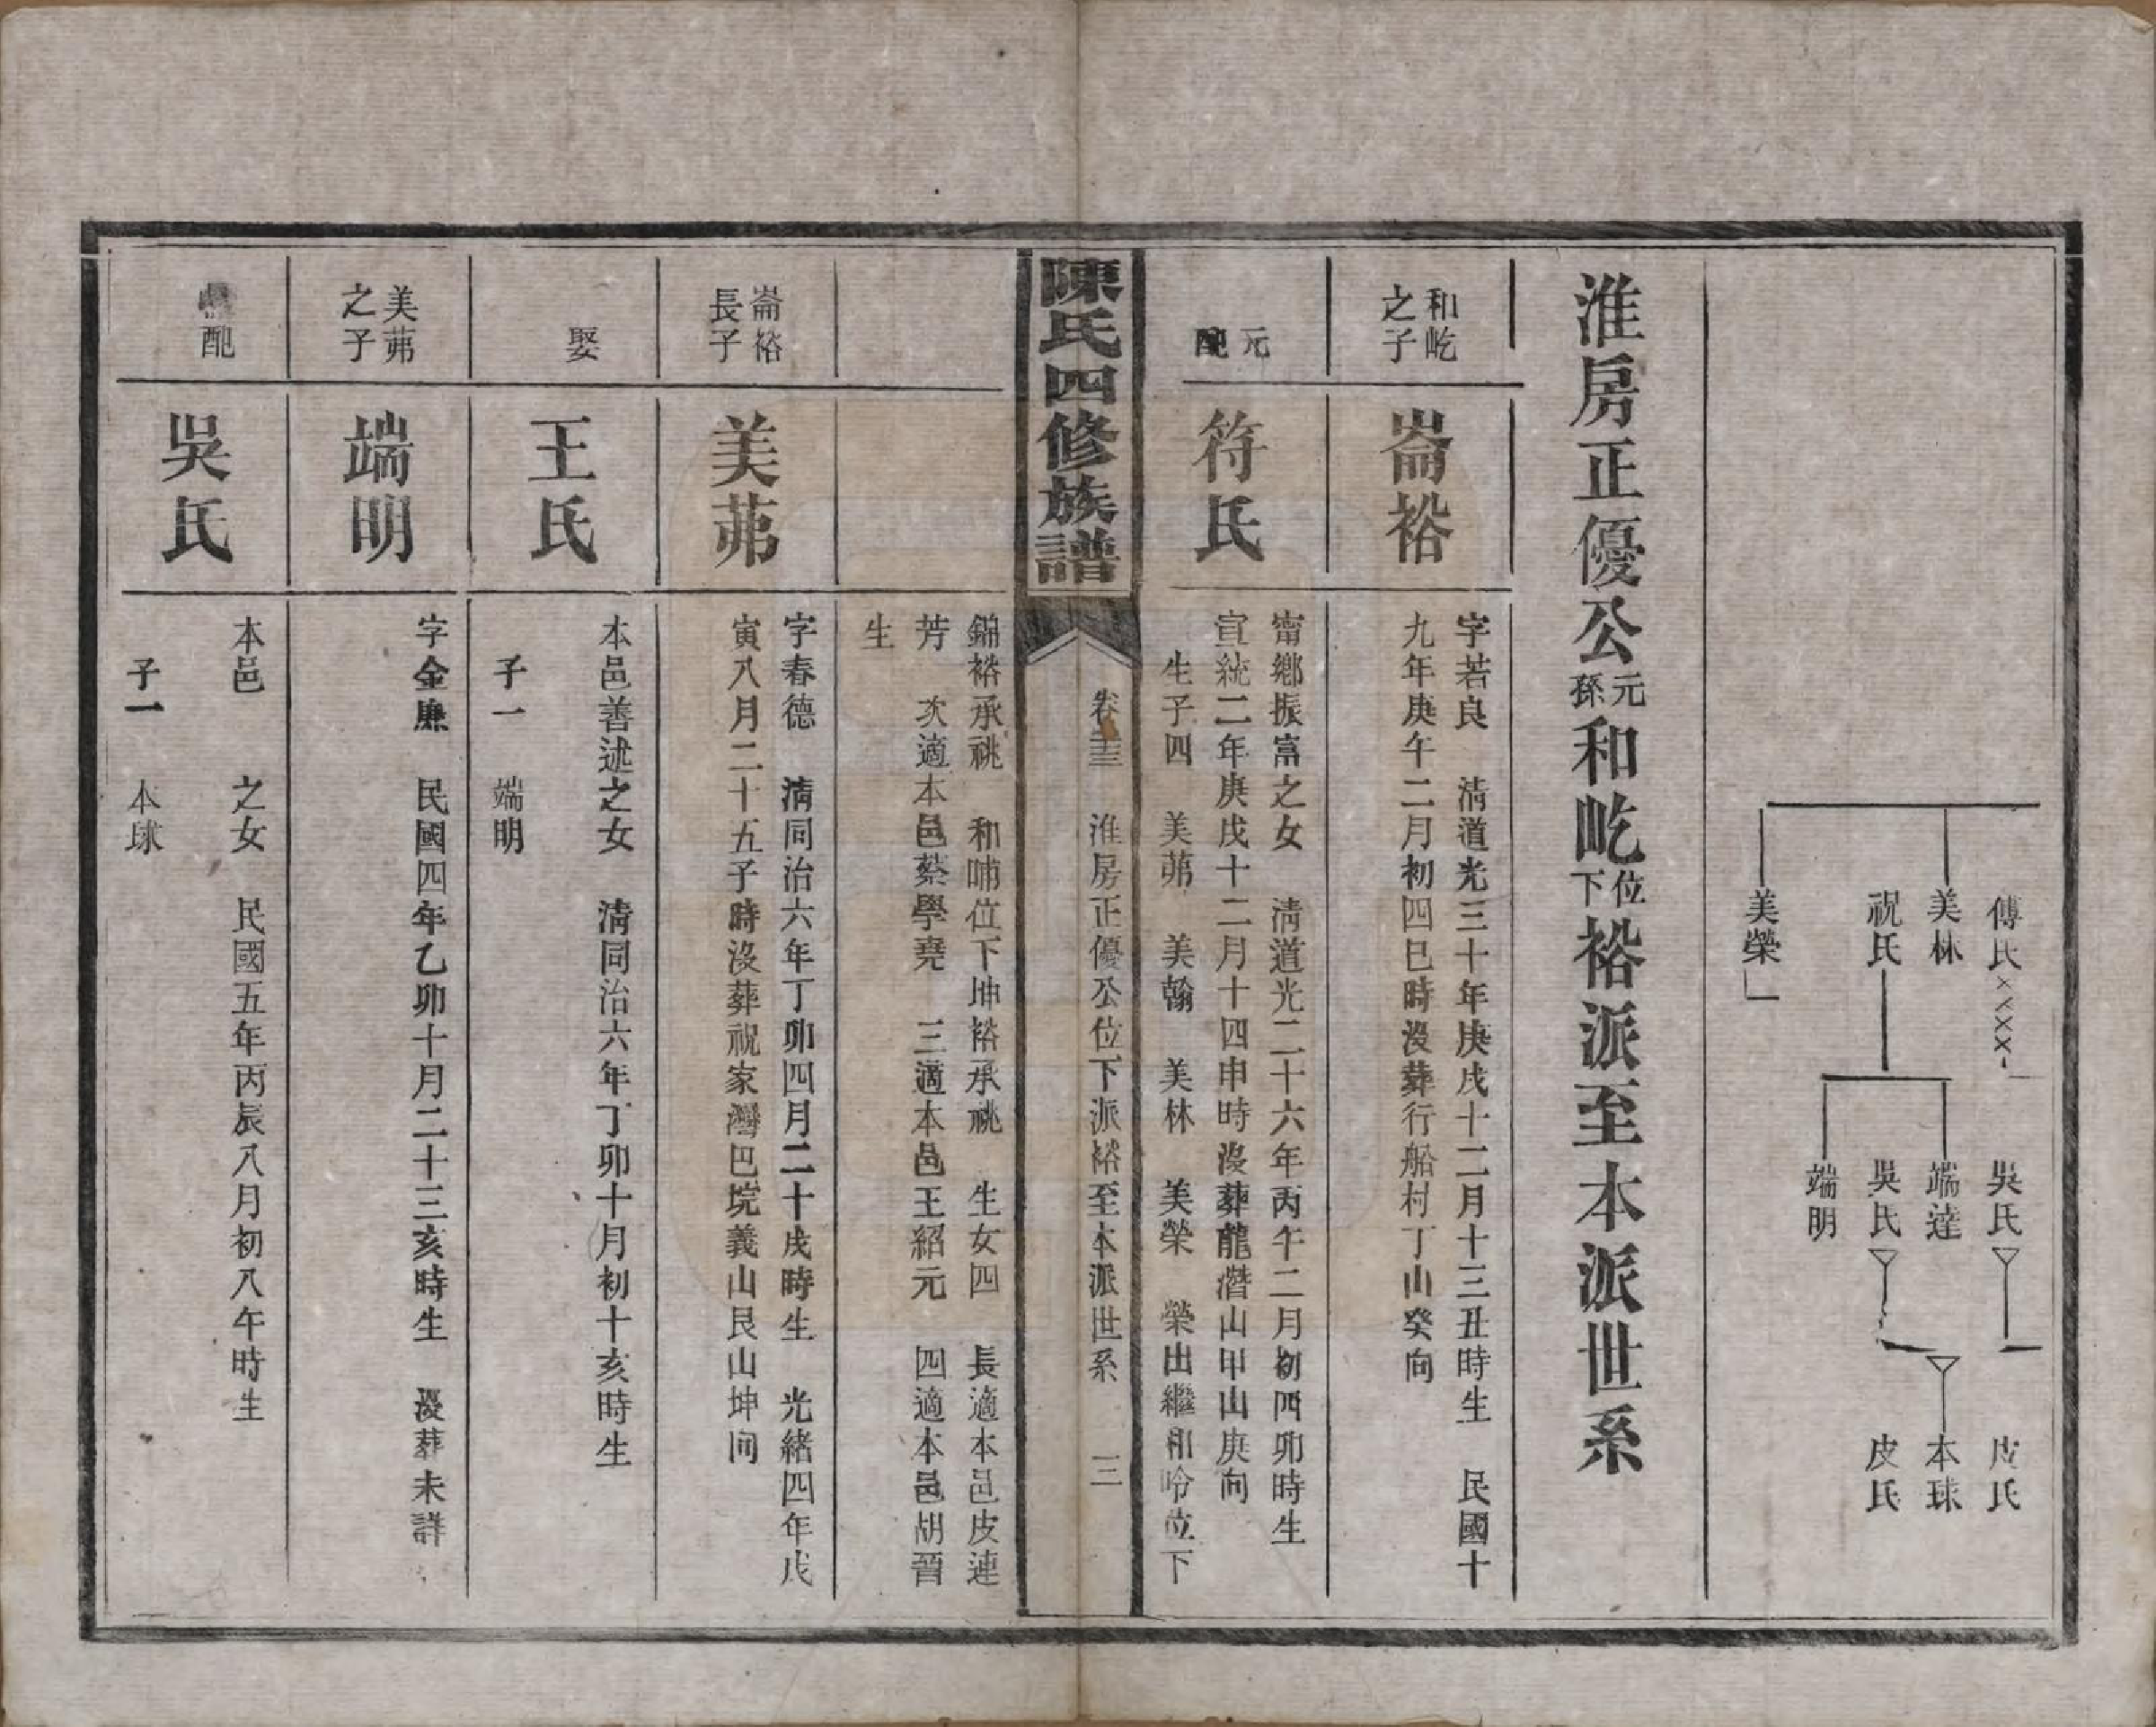 傅氏
美林
祝氏
美榮
吳氏
端達
吳氏
端明
皮氏
本球
皮氏
淮房正優公元孫和屹位下裕派至本派世系
和屹之子
崙裕
字若良 清道光三十年庚戌十二月十三丑時生 民國十
九年庚午二月初四巳時沒葬行船村丁山癸向
元配
符氏
甯鄉振富之女 清道光二十六年丙午二月初四卯時生
宣統二年庚戌十二月十四申時沒葬龍潛山甲山庚向
生子四 美茀 美翰 美林 美榮 榮出繼和唫位下
陳氏四修族譜
卷 淮房正優公位下派裕至本派世系 三
錦裕承祧 和哺位下坤裕承祧 生女四 長適本邑皮連
芳 次適本邑蔡學堯 三適本邑王紹元 四適本邑胡晉
生
崙裕長子
美茀
字春德 清同治六年丁卯四月二十戌時生 光緒四年戊
寅八月二十五子時沒葬祝家灣巴垸義山艮山坤向
娶
王氏
本邑善述之女 清同治六年丁卯十月初十亥時生
子一 端明
美茀之子
端明
字金廉 民國四年乙卯十月二十三亥時生 沒葬未詳
配
吳氏
本邑 之女 民國五年丙辰八月初八午時生
子一 本球